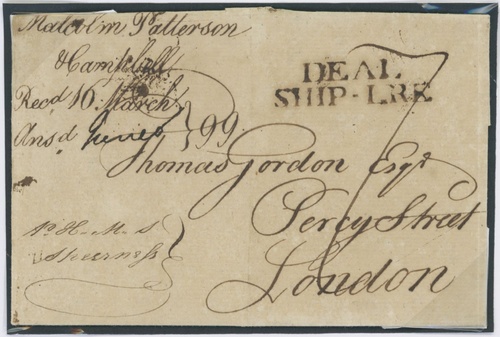 Malcolm Patterson
& Campbell
Rec'd 16 March
Ans'd } 99.
DEAL
SHIP-LRE
Thomas Gordon Esqr.
Percy Street
London
Pr H.M.S
Sheerness
7